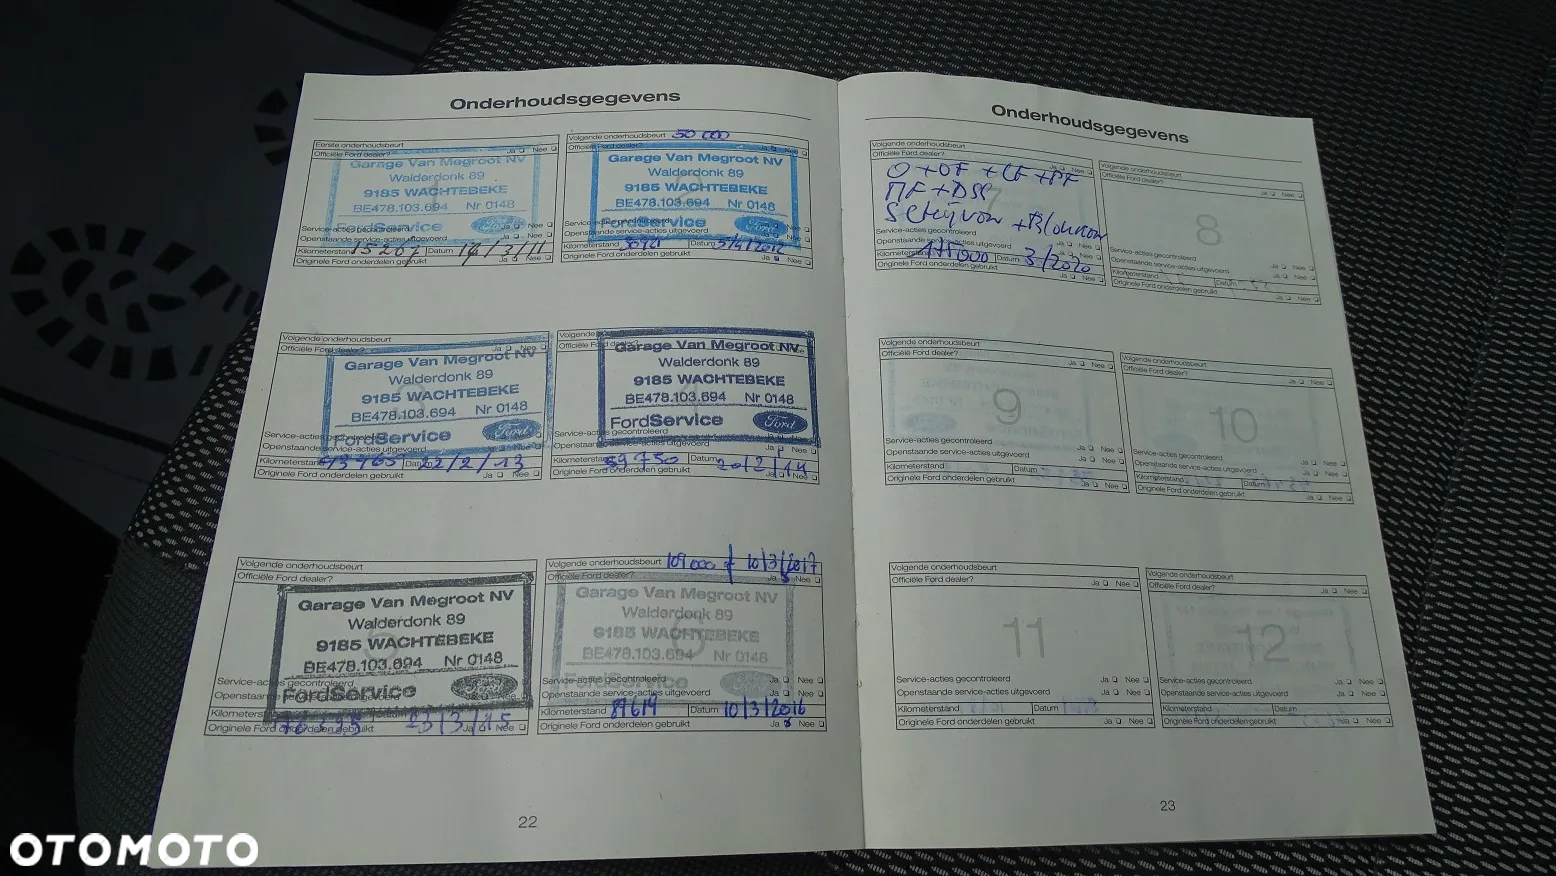 Onderhoudsgegevens
Eerste onderhoudsbeurt
Officiële Ford dealer? Ja Nee
Garage Van Megroot NV
Walderdonk 89
9185 WACHTEBEKE
BE478.103.694 Nr 0148
FordService Ford
Service-acties gecontroleerd Ja Nee
Openstaande service-acties uitgevoerd Ja Nee
Kilometerstand Datum
Originele Ford onderdelen gebruikt Ja Nee
Volgende onderhoudsbeurt 50 000
Officiële Ford dealer? Ja Nee
Garage Van Megroot NV
Walderdonk 89
9185 WACHTEBEKE
BE478.103.694 Nr 0148
FordService Ford
Service-acties gecontroleerd Ja Nee
Openstaande service-acties uitgevoerd Ja Nee
Kilometerstand Datum
Originele Ford onderdelen gebruikt Ja Nee
Volgende onderhoudsbeurt
Officiële Ford dealer? Ja Nee
3
Garage Van Megroot NV
Walderdonk 89
9185 WACHTEBEKE
BE478.103.694 Nr 0148
FordService Ford
Service-acties gecontroleerd Ja Nee
Openstaande service-acties uitgevoerd Ja Nee
Kilometerstand Datum 22/2/13
Originele Ford onderdelen gebruikt Ja Nee
Volgende
Officiële Ford dealer?
Garage Van Megroot NV
Walderdonk 89
9185 WACHTEBEKE
BE478.103.694 Nr 0148
FordService Ford
Service-acties gecontroleerd Ja Nee
Openstaande service-acties uitgevoerd Ja Nee
Kilometerstand 59750 Datum 20/2/14
Originele Ford onderdelen gebruikt Ja Nee
Volgende onderhoudsbeurt
Officiële Ford dealer? Ja Nee
5
Garage Van Megroot NV
Walderdonk 89
9185 WACHTEBEKE
BE478.103.694 Nr 0148
FordService Ford
Service-acties gecontroleerd
Openstaande service-acties uitgevoerd
Kilometerstand Datum 23/3/15
Originele Ford onderdelen gebruikt Ja Nee
Volgende onderhoudsbeurt 109000 10/3/2017
Officiële Ford dealer? Ja Nee
6
Garage Van Megroot NV
Walderdonk 89
9185 WACHTEBEKE
BE478.103.694 Nr 0148
FordService Ford
Service-acties gecontroleerd Ja Nee
Openstaande service-acties uitgevoerd Ja Nee
Kilometerstand 89619 Datum 10/3/2016
Originele Ford onderdelen gebruikt Ja Nee
22
Onderhoudsgegevens
Volgende onderhoudsbeurt
Officiële Ford dealer? Ja Nee
O+OF +LF+PF
7
Service-acties gecontroleerd Ja Nee
Openstaande service-acties uitgevoerd Ja Nee
Kilometerstand Datum 3/2020
Originele Ford onderdelen gebruikt Ja Nee
Volgende onderhoudsbeurt
Officiële Ford dealer? Ja Nee
8
Service-acties gecontroleerd Ja Nee
Openstaande service-acties uitgevoerd Ja Nee
Kilometerstand Datum
Originele Ford onderdelen gebruikt Ja Nee
Volgende onderhoudsbeurt
Officiële Ford dealer? Ja Nee
9
Service-acties gecontroleerd Ja Nee
Openstaande service-acties uitgevoerd Ja Nee
Kilometerstand Datum
Originele Ford onderdelen gebruikt Ja Nee
Volgende onderhoudsbeurt
Officiële Ford dealer? Ja Nee
10
Service-acties gecontroleerd Ja Nee
Openstaande service-acties uitgevoerd Ja Nee
Kilometerstand Datum
Originele Ford onderdelen gebruikt Ja Nee
Volgende onderhoudsbeurt
Officiële Ford dealer? Ja Nee
11
Service-acties gecontroleerd Ja Nee
Openstaande service-acties uitgevoerd Ja Nee
Kilometerstand Datum
Originele Ford onderdelen gebruikt Ja Nee
Volgende onderhoudsbeurt
Officiële Ford dealer? Ja Nee
12
Service-acties gecontroleerd Ja Nee
Openstaande service-acties uitgevoerd Ja Nee
Kilometerstand Datum
Originele Ford onderdelen gebruikt Ja Nee
23
OTOMOTO